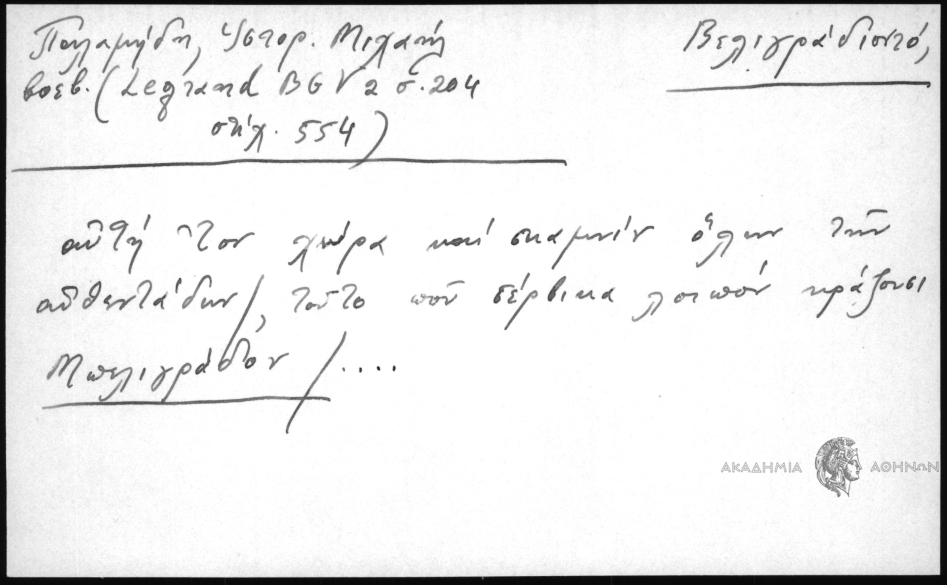 Παλαμήδη, Ἱστορ. Μιχαὴλ
βοεβ. (Legrand BGV 2 σ. 204
στίχ. 554)
Βελιγράδι
αὐτή τον χώρα καί σκαμνίν ὅλων τῶν
αὐθεντάδων/, τοῦτο ποῦ σέρβικα λοιπόν κράζουσι
Μπελιγράδον /....
ΑΚΑΔΗΜΙΑ ΑΘΗΝΩΝ